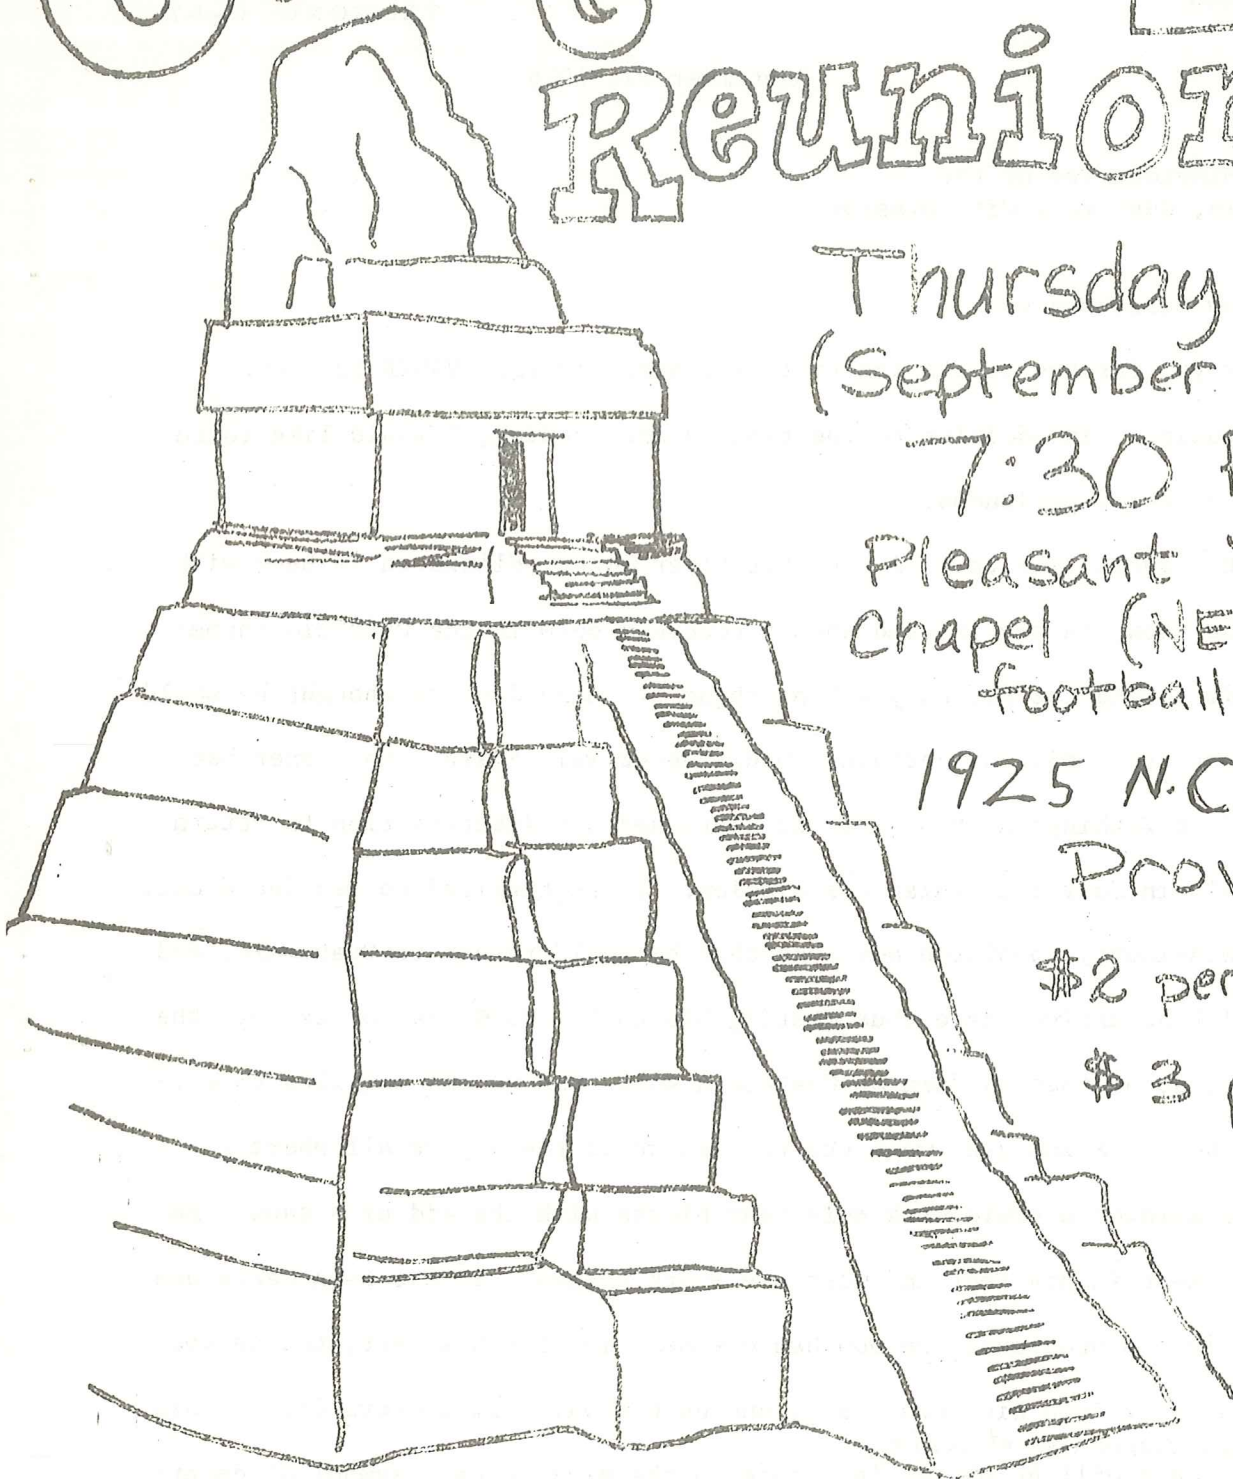 Reunion
Thursday
(September
7:30
Pleasant
Chapel (NE
football
1925 N.C
Prov
$2 per
$3